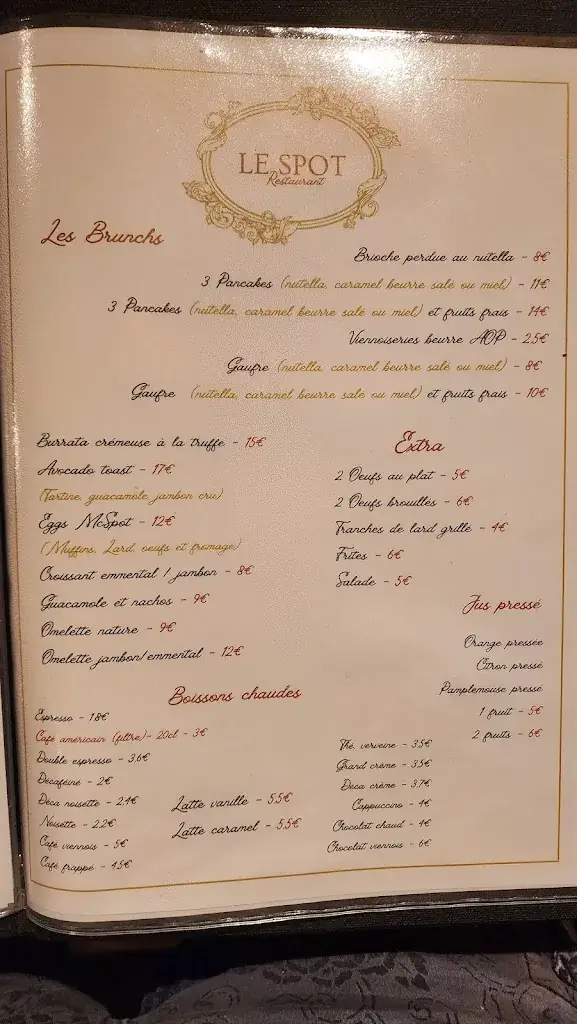 LE SPOT
Restaurant
Les Brunchs
Brioche perdue au nutella - 8€
3 Pancakes (nutella, caramel beurre salé ou miel) - 11€
3 Pancakes (nutella, caramel beurre salé ou miel) et fruits frais - 14€
Viennoiseries beurre AOP - 2.5€
Gaufre (nutella, caramel beurre salé ou miel) - 8€
Gaufre (nutella, caramel beurre salé ou miel) et fruits frais - 10€
Burrata crémeuse à la truffe - 15€
Avocado toast - 17€
(Tartine, guacamole, jambon cru)
Eggs McSpot - 12€
(Muffins, Lard, oeufs et fromage)
Croissant emmental / jambon - 8€
Guacamole et nachos - 9€
Omelette nature - 9€
Omelette jambon/emmental - 12€
Extra
2 Oeufs au plat - 5€
2 Oeufs brouillés - 6€
Tranches de lard grillé - 4€
Frites - 6€
Salade - 5€
Jus pressé
Orange pressée
Citron pressé
Pamplemouse pressé
1 fruit - 5€
2 fruits - 6€
Boissons chaudes
Espresso - 1.8€
Café américain (filtre)- 20cl - 3€
Double espresso - 3.6€
Décaféiné - 2€
Déca noisette - 2.4€
Noisette - 2.2€
Café viennois - 5€
Café frappé - 4.5€
Latte vanille - 5.5€
Latte caramel - 5.5€
Thé, verveine - 3.5€
Grand crème - 3.5€
Déca crème - 3.7€
Cappuccino - 4€
Chocolat chaud - 4€
Chocolat viennois - 6€